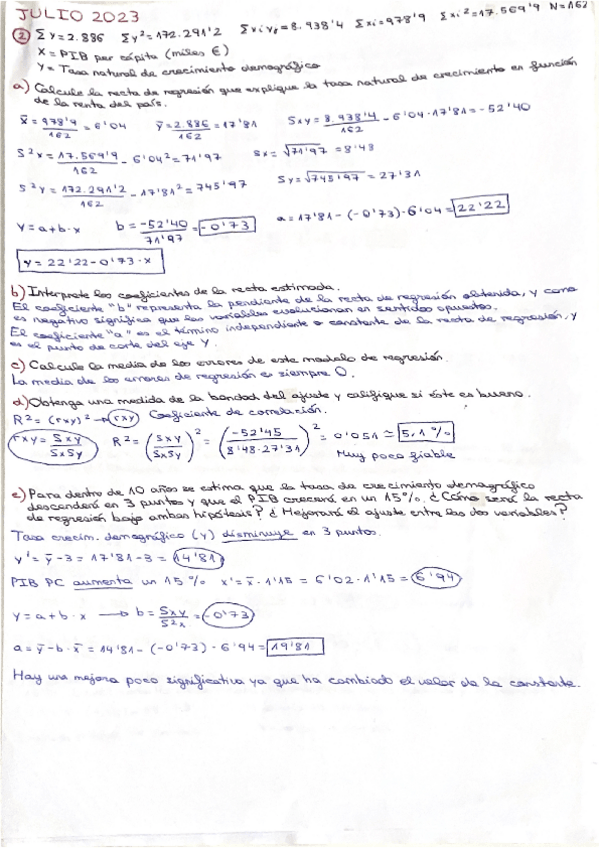 JULIO 2023
② Σy=2.886 Σy²=172.291'2 Σxiyi=8.938'4 Σxi=978'9 Σxi²=17.569'9 N=162
X = PIB per cápita (miles €)
Y = Tasa natural de crecimiento demográfico
a) Calcule la recta de regresión que explique la tasa natural de crecimiento en función
de la renta del país.
x̄ = 978'9/162 = 6'04 ȳ = 2.886/162 = 17'81 Sxy = 8.938'4/162 - 6'04·17'81 = -52'40
S²x = 17.569'9/162 - 6'04² = 71'97 Sx = √71'97 = 8'48
S²y = 172.291'2/162 - 17'81² = 745'97 Sy = √745'97 = 27'31
y = a+b·x b = -52'40/71'97 = -0'73 a = 17'81 - (-0'73)·6'04 = 22'22
y = 22'22 - 0'73·x
b) Interprete los coeficientes de la recta estimada.
El coeficiente "b" representa la pendiente de la recta de regresión obtenida, y como
es negativo significa que las variables evolucionan en sentidos opuestos.
El coeficiente "a" es el término independiente o constante de la recta de regresión, y
es el punto de corte del eje Y.
c) Calcule la media de los errores de este modelo de regresión.
La media de los errores de regresión es siempre 0.
d) Obtenga una medida de la bondad del ajuste y califique si éste es bueno.
R² = (rxy)² → rxy Coeficiente de correlación.
rxy = Sxy/SxSy R² = (Sxy/SxSy)² = (-52'45/8'48·27'31)² = 0'051 ≃ 5,1%
Muy poco fiable
e) Para dentro de 10 años se estima que la tasa de crecimiento demográfico
descenderá en 3 puntos y que el PIB crecerá en un 15%. ¿Cómo será la recta
de regresión bajo ambas hipótesis? ¿Mejorará el ajuste entre las dos variables?
Tasa crecim. demográfico (y) disminuye en 3 puntos.
y' = ȳ - 3 = 17'81 - 3 = 14'81
PIB PC aumenta un 15% x' = x̄·1'15 = 6'02·1'15 = 6'94
y = a+b·x → b = Sxy/S²x = -0'73
a = ȳ - b·x̄ = 14'81 - (-0'73)·6'94 = 19'81
Hay una mejora poco significativa ya que ha cambiado el valor de la constante.